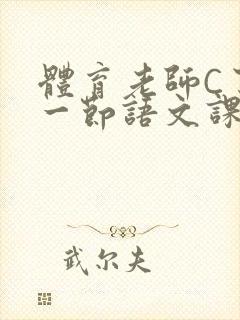 體育老師C了
一節語文課
武尔夫